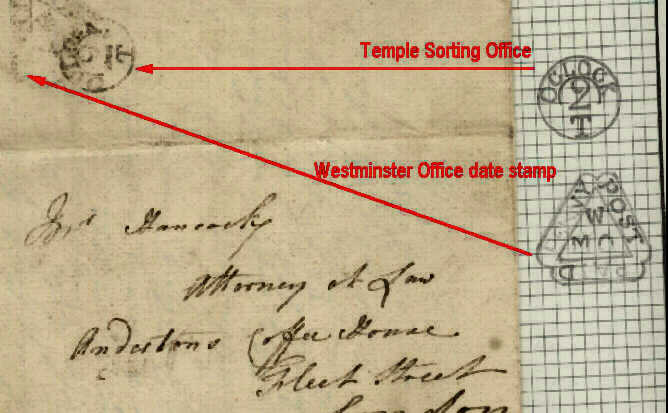 Temple Sorting Office
O'CLOCK
2
T
Westminster Office date stamp
PENNY POST PAID
W
MO
O'CLOCK
T
Mr Hancock
Attorney at Law
Andertons Coffee House
Fleet Street
London